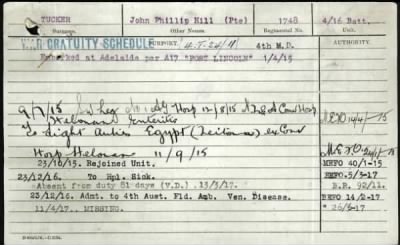 TUCKER John Phillip Hill (Pte) 1748 4/16 Batt.
Surname. Regimental No. Unit.
WAR GRATUITY SCHEDULE 4th M.D.
Embarked at Adelaide per A17 "PORT LINCOLN" 1/4/15
9/7/15 Hosp 12/8/15 Con Hosp
Helouan Enteritis
To Light duties Egypt (Zeitoun) ex Con
Hosp Helouan 11/9/15
23/10/15. Rejoined Unit. MEFO 40/1-15
23/12/16. To Hpl. Sick. BEFO.5/3-17
Absent from duty 81 days (V.D.) 13/3/17. B.R. 92/11.
23/12/16. Admt. to 4th Aust. Fld. Amb. Ven. Disease. BEFO 14/2-17
11/4/17.. MISSING. " 26/5-17